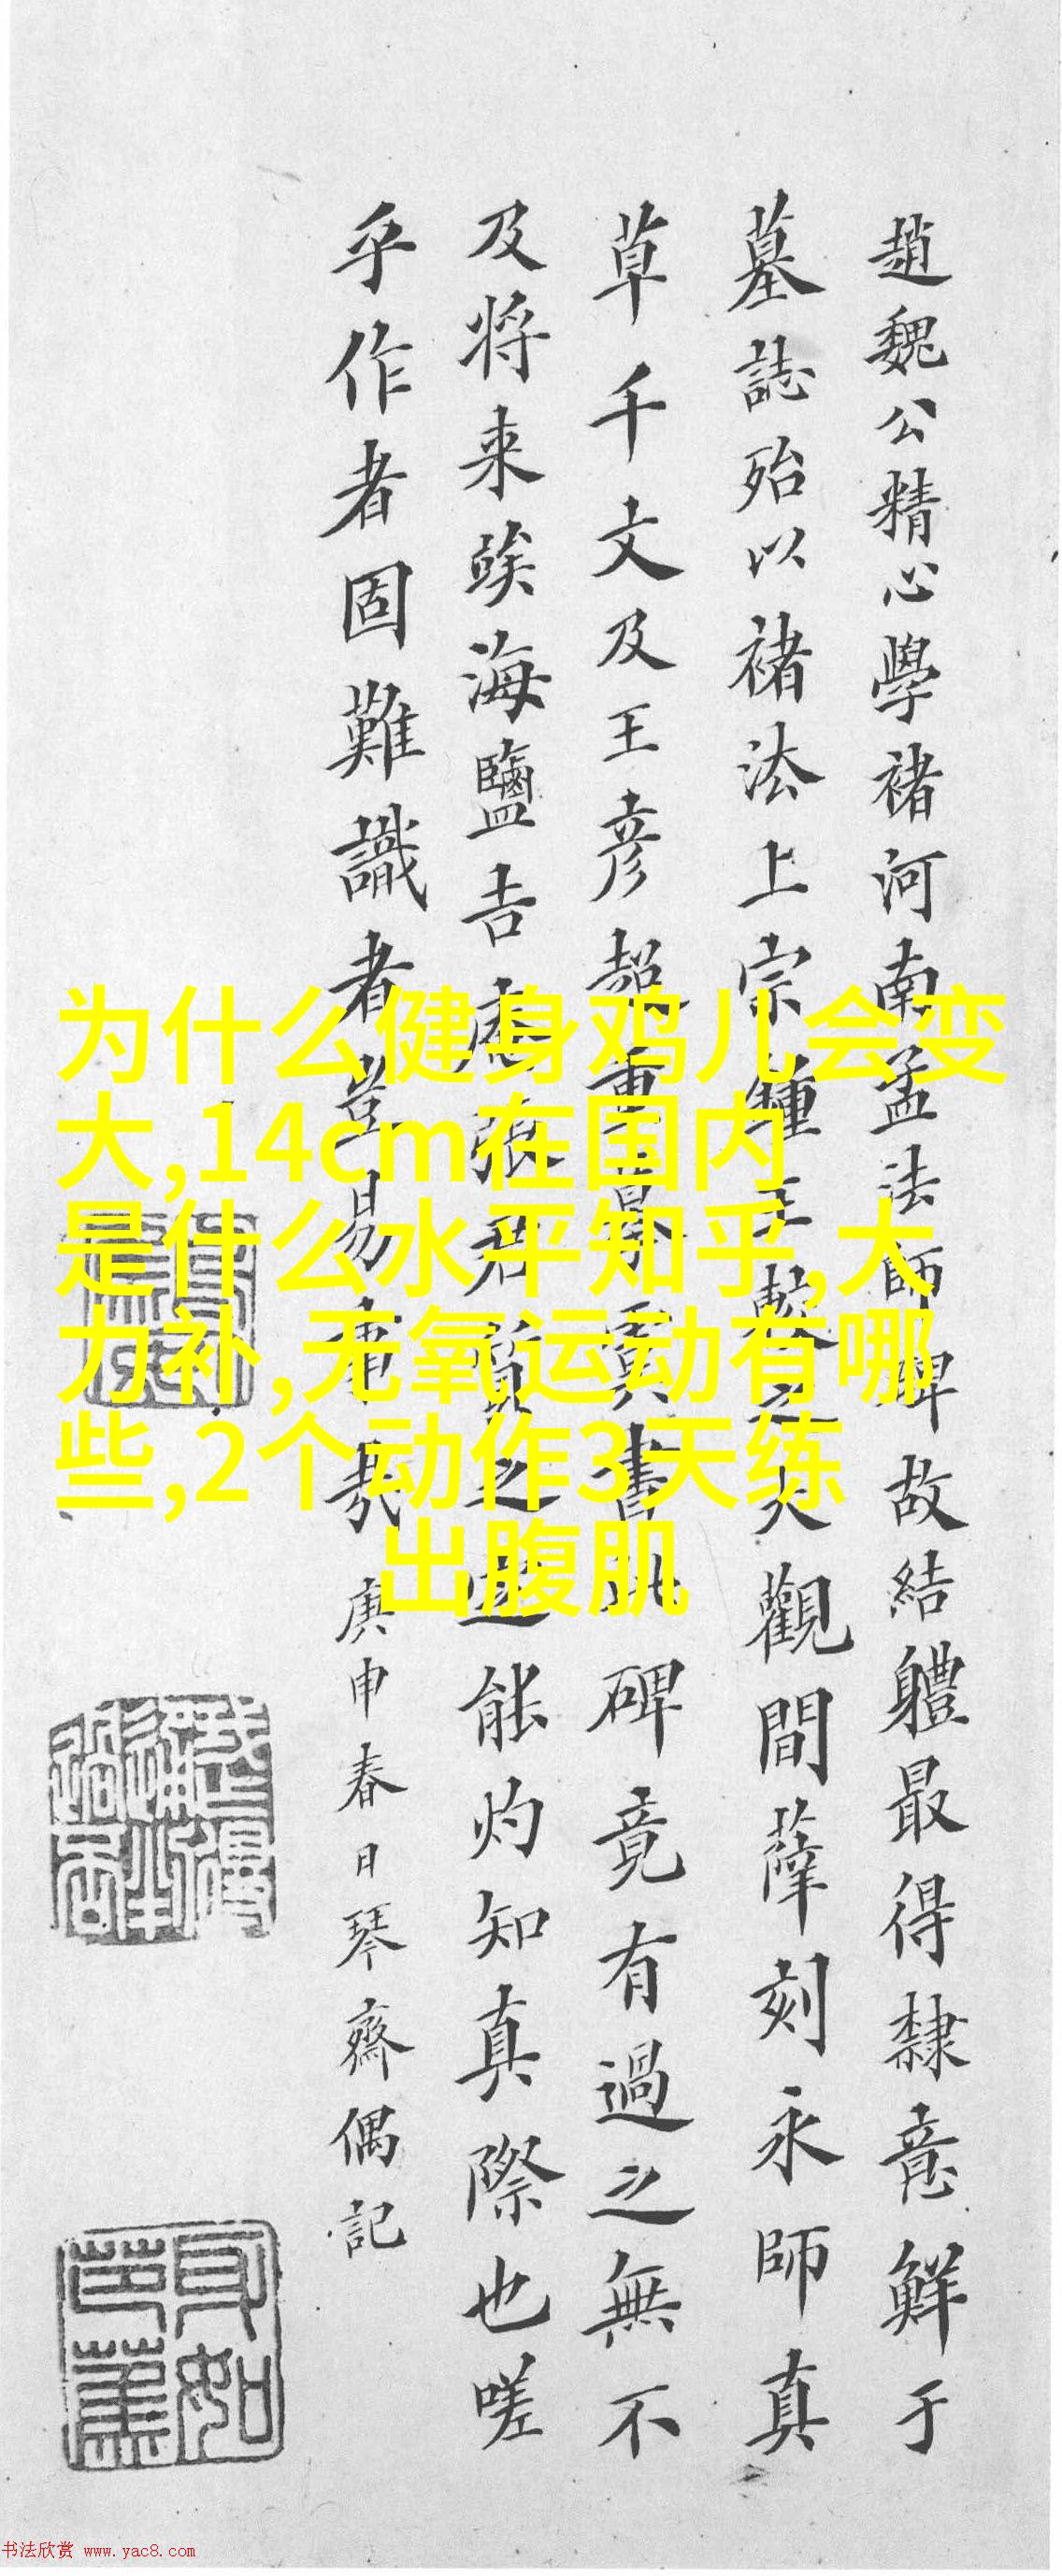 趙魏公精心學褚河南孟法師碑故結軆最得隸意鮮于
墓誌殆以褚法上宗鍾王繫之大觀間薛刻永師真
草千文及王彦超重摹虞書此碑竟有過之無不
及将来竢海鹽吉 張君 之能灼知真際也嗟
乎作者固難識者豈易 哉
庚申春日琴齋偶記
为什么健身鸡儿会变
大,14cm在国内
是什么水平知乎,大
力补,无氧运动有哪
些,2个动作3天练
出腹肌
书法欣赏 www.yac8.com